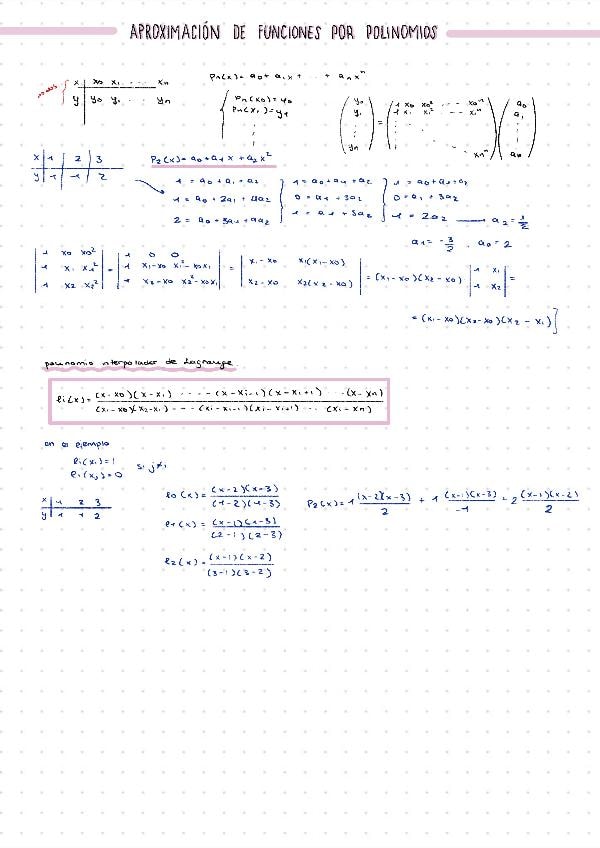 APROXIMACIÓN DE FUNCIONES POR POLINOMIOS
Pn(x) = a0 + a1x + ... + anx^n
nodos { x | x0 x1 ... xn
y | y0 y1 ... yn
{ Pn(x0) = y0
Pn(x1) = y1
(y0 y1 ... yn) = (1 x0 x0² ... x0^n
1 x1 x1² ... x1^n
... xn^n) (a0 a1 ... an)
x | 1 | 2 | 3
y | 1 | 1 | 2
P2(x) = a0 + a1x + a2x²
1 = a0 + a1 + a2 } 1 = a0 + a1 + a2 } 1 = a0 + a1 + a2
1 = a0 + 2a1 + 4a2 } 0 = a1 + 3a2 } 0 = a1 + 3a2
2 = a0 + 3a1 + 9a2 } 1 = a1 + 5a2 } 1 = 2a2 → a2 = 1/2
a1 = -3/2 , a0 = 2
|1 x0 x0²| = |1 0 0| = |x1-x0 x1(x1-x0)| = (x1-x0)(x2-x0) |1 x1| =
|1 x1 x1²| |1 x1-x0 x1²-x0x1| |x2-x0 x2(x2-x0)| |1 x2|
|1 x2 x2²| |1 x2-x0 x2²-x0x1|
= (x1-x0)(x2-x0)(x2-x1)]
polinomio interpolador de Lagrange
li(x) = (x-x0)(x-x1) ... (x-xi-1)(x-xi+1) ... (x-xn)
(xi-x0)(x2-x1) ... (xi-xi-1)(xi-xi+1) ... (xi-xn)
en el ejemplo
li(xi) = 1
li(xj) = 0 si j≠i
x | 1 2 3
y | 1 1 2
l0(x) = (x-2)(x-3) / (1-2)(1-3)
l1(x) = (x-1)(x-3) / (2-1)(2-3)
l2(x) = (x-1)(x-2) / (3-1)(3-2)
P2(x) = 1 (x-2)(x-3) / 2 + 1 (x-1)(x-3) / -1 + 2 (x-1)(x-2) / 2